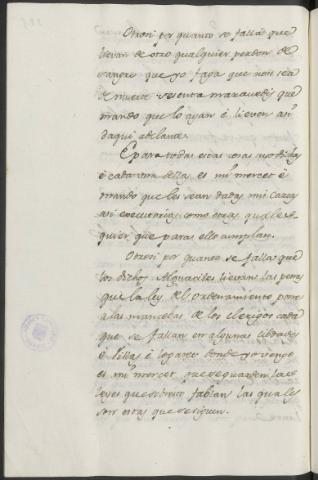 Otrosi por quanto se falla que
llevan de otro qualquier perdon de
sangre que yo faga que non sea
de muerte sesenta maravedis que
mando que lo ayan é lieven asi
daqui adelante.
E para todas estas cosas suso dichas
é cada una dellas es mi merced é
mando que les sean dadas mis cartas
asi executorias como otras quales
quier que para ello cumplan.
Otrosi por quanto se falla que
los dichos Alguaciles lievan las penas
que la ley del ordenamiento pone
a las mancebas de los clerigos cada
que se fallan en algunas cibdades
é Villas é logares donde yo vengo
es mi merced que se guarden las
leyes que sobresto fablan las quales
son estas que se siguen.